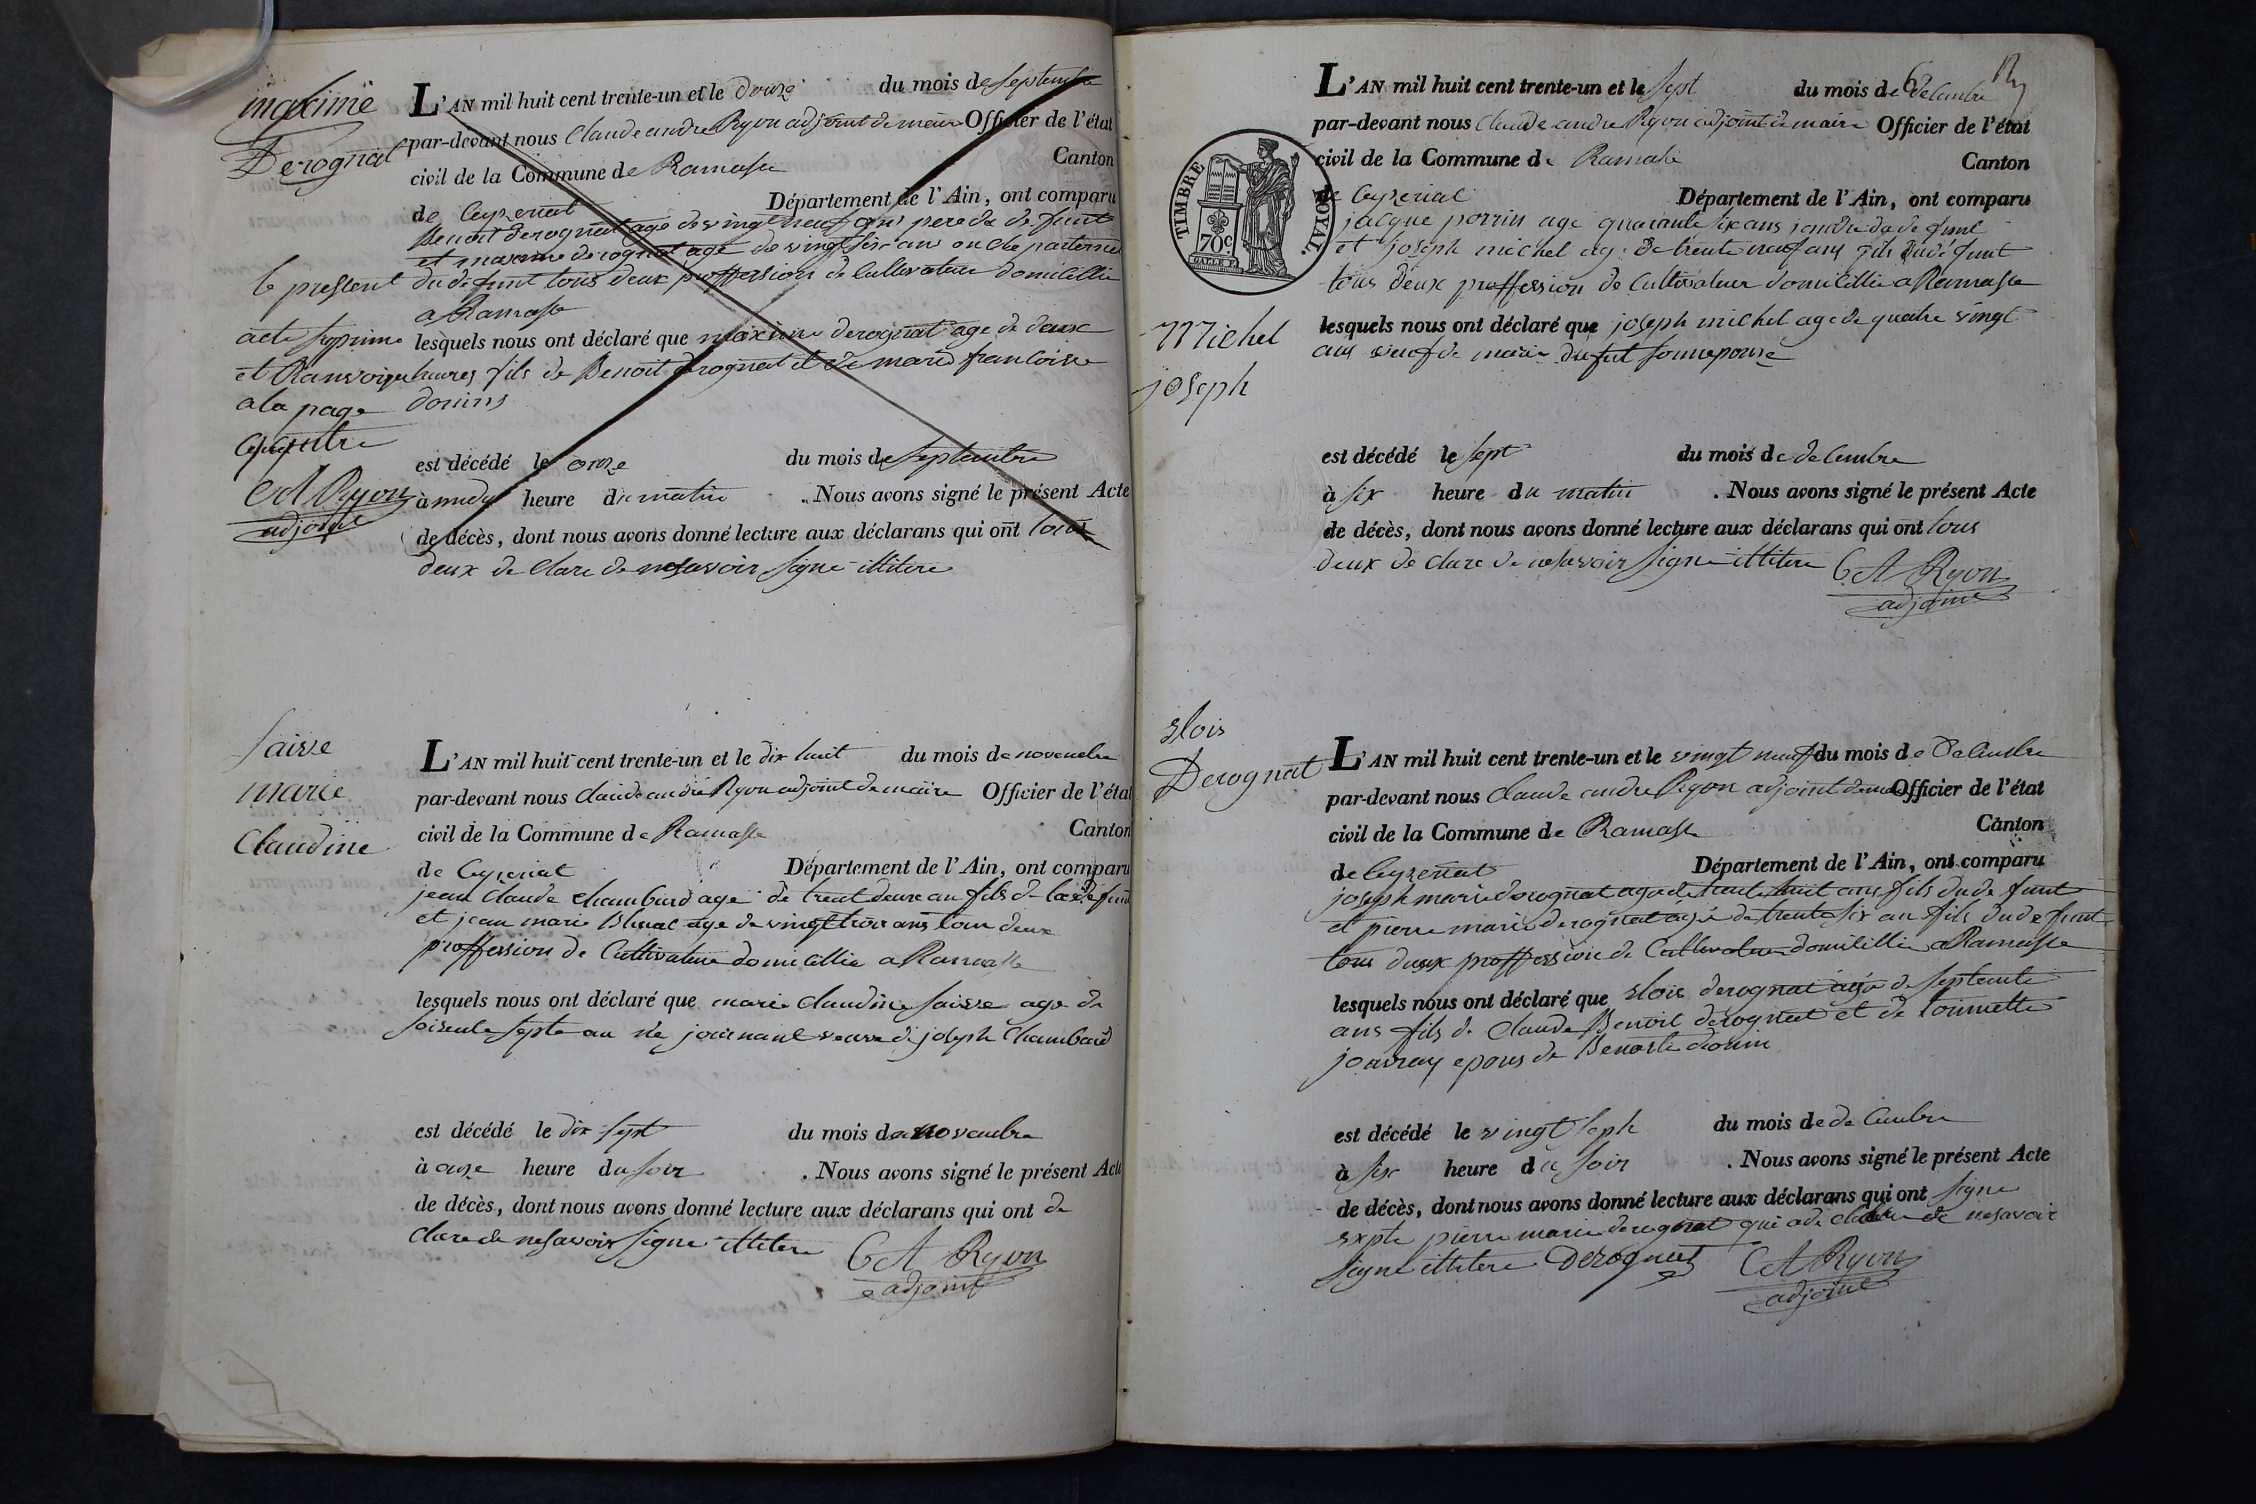 maxime
Derognat
L'AN mil huit cent trente-un et le douze du mois de septembre
par-devant nous Claude andre Ryon adjoint de maire Officier de l'état
civil de la Commune de Ramasse Canton
de Ceyzeriat Département de l'Ain, ont comparu
Benoit derognat age de vingt neuf ans pere du defunt
et maxime derognat age de vingt six ans oncle paternel
du defunt tous deux proffession de Cultivateur domicillie
a Ramasse
le pressent
acte suprime
et Ranvoiyer
a la page
CA Ryon
adjoint
lesquels nous ont déclaré que maxime derognat age de deux
heures fils de Benoit derognat et de marie francoise
donins
est décédé le onze du mois de septembre
à midy heure du matin . Nous avons signé le présent Acte
de décès, dont nous avons donné lecture aux déclarans qui ont tous
deux de clare de ne savoir signe ittitere
saisse
marie
Claudine
L'AN mil huit cent trente-un et le dix huit du mois de novembre
par-devant nous claude andré Ryon adjoint de maire Officier de l'état
civil de la Commune de Ramasse Canton
de Ceyzeriat Département de l'Ain, ont comparu
jean Claude chambard age de trent deux an fils de la defunt
et jean marie age de vingt trois ans tous deux
proffession de Cultivateur domicillie a Ramasse
lesquels nous ont déclaré que marie claudine saisse age de
soisente septe an né journant veuve de joseph Chambard
est décédé le dix sept du mois de novembre
à onze heure du soir . Nous avons signé le présent Acte
de décès, dont nous avons donné lecture aux déclarans qui ont de
clare de ne savoir signe ittitere CA Ryon
adjoint
L'AN mil huit cent trente-un et le sept du mois de decembre
par-devant nous Claude andre Ryon adjoint de maire Officier de l'état
civil de la Commune de Ramasse Canton
de Ceyzeriat Département de l'Ain, ont comparu
TIMBRE ROYAL.
70c
jacque perrin age quarante six ans jandre du defunt
et joseph michel age de trente neuf ans fils du défunt
tous deux proffession de Cultivateur domicillie a Ramasse
Michel
joseph
lesquels nous ont déclaré que joseph michel age de quatre vingt
ans veuf de marie dufut
est décédé le sept du mois de decembre
à six heure du matin . Nous avons signé le présent Acte
de décès, dont nous avons donné lecture aux déclarans qui ont tous
deux de clare de ne savoir signe ittitere CA Ryon
adjoint
slois
Derognat
L'AN mil huit cent trente-un et le vingt neuf du mois de decembre
par-devant nous Claude andre Ryon adjoint de maire Officier de l'état
civil de la Commune de Ramasse Canton
de Ceyzeriat Département de l'Ain, ont comparu
joseph marie derognat age de trente huit ans fils du defunt
et pierre marie derognat agée de trente six an fils du defunt
tous deux proffession de Cultivateur domicillie a Ramasse
lesquels nous ont déclaré que slois derognat agée de septente
ans fils de claude Benoit derognat et de Toinnette
joavray epous de Benoite donin
est décédé le vingt seph du mois de decembre
à six heure du soir . Nous avons signé le présent Acte
de décès, dont nous avons donné lecture aux déclarans qui ont signe
expte pierre marie derognat qui a de clare de ne savoir
signe ittitere Derognat CA Ryon
adjoint